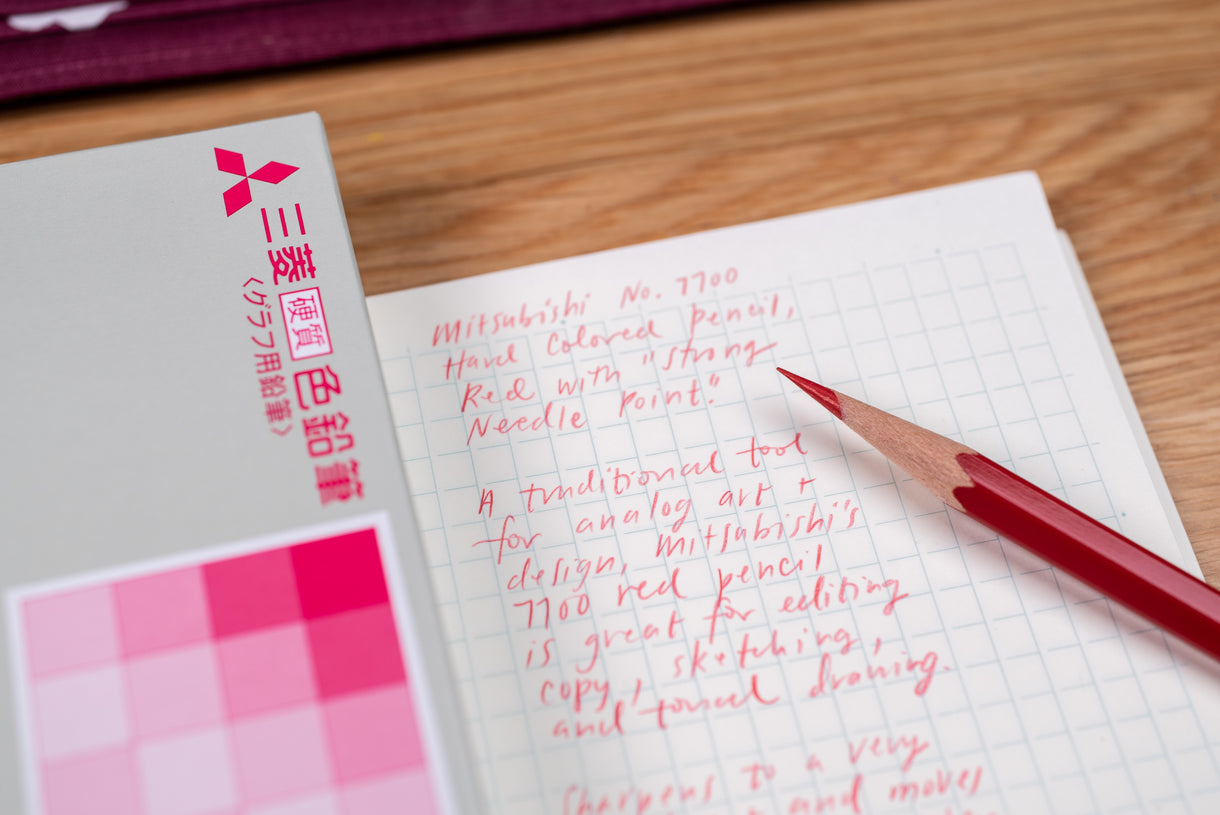 三菱硬質色鉛筆
〈グラフ用鉛筆〉
Mitsubishi No. 7700
Hard Colored pencil,
Red with "strong
Needle Point."
A traditional tool
for analog art +
design, Mitsubishi's
7700 red pencil
is great for editing
copy, sketching,
and tonal drawing.
Sharpens to a very
and moves